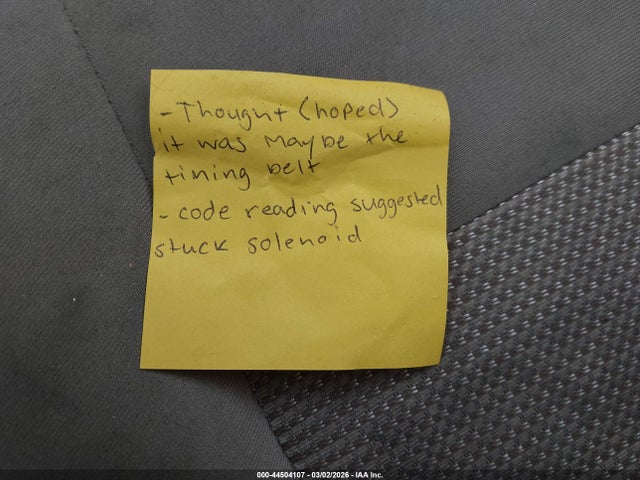 - Thought (hoped)
it was maybe the
timing belt
- code reading suggested
stuck solenoid
000-44504107 - 03/02/2026 - IAA Inc.